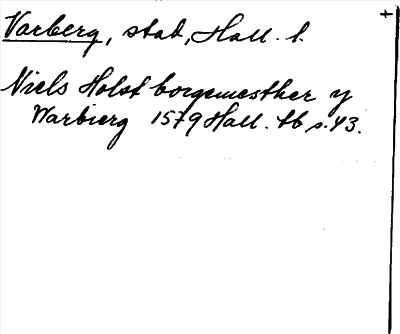 Varberg, stad, Hall. l. +
Niels Holst borgemesther y
Warbierg 1579 Hall. tb s. 43.